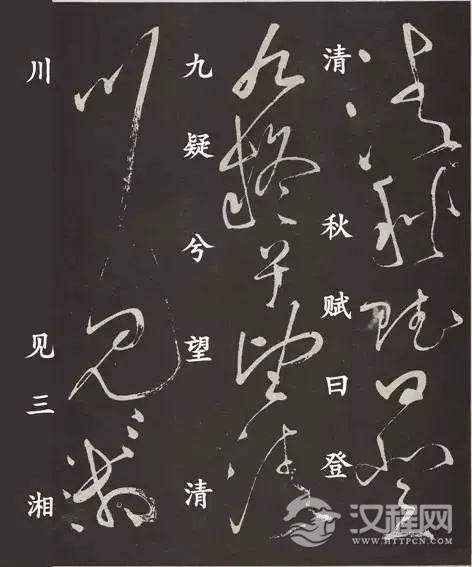 清秋赋曰登
九疑兮望清
川见三湘
汉程网
HTTPCN.COM